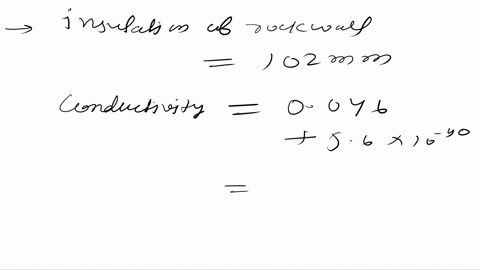 → insulation of rockwall
= 102 mm
Conductivity = 0.046
+ 5.6 × 10^-40
=